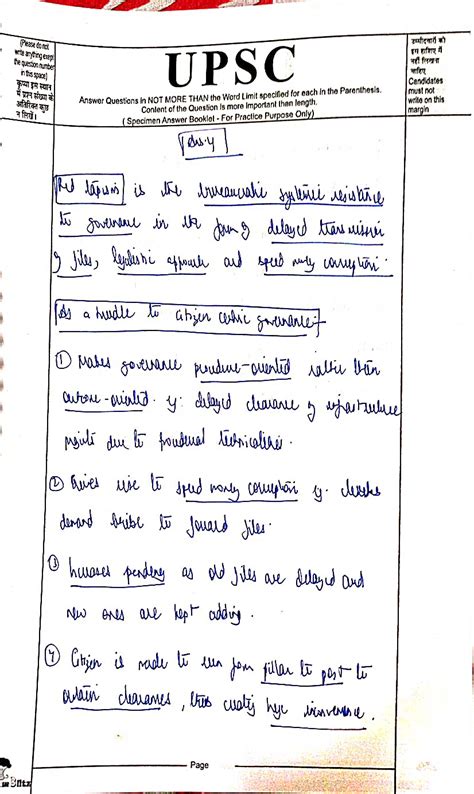 (Please do not
write anything except
the question number
in this space)
कृपया इस स्थान
में प्रश्न संख्या के
अतिरिक्त कुछ
न लिखें।
UPSC
Answer Questions in NOT MORE THAN the Word Limit specified for each in the Parenthesis.
Content of the Question is more important than length.
( Specimen Answer Booklet - For Practice Purpose Only)
उम्मीदवारों को
इस हाशिए में
नहीं लिखना
चाहिए
Candidates
must not
write on this
margin
Ans. 4
Red tapism is the bureaucratic systemic resistance
to governance in the form of delayed transmission
of files, legalistic approach and speed money corruption.
As a hurdle to citizen centric governance :-
① Makes governance procedure-oriented rather than
outcome-oriented. eg: delayed clearance of infrastructure
projects due to procedural technicalities.
② Gives rise to speed money corruption eg. clerks
demand bribe to forward files.
③ Increases pendency as old files are delayed and
new ones are kept adding.
④ Citizen is made to run from pillar to post to
obtain clearances, thus creating huge inconvenience.
Page